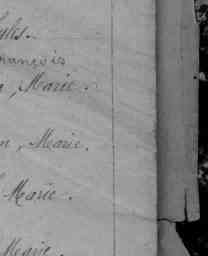 François
, Marie.
n, Marie.
Marie.
Marie.